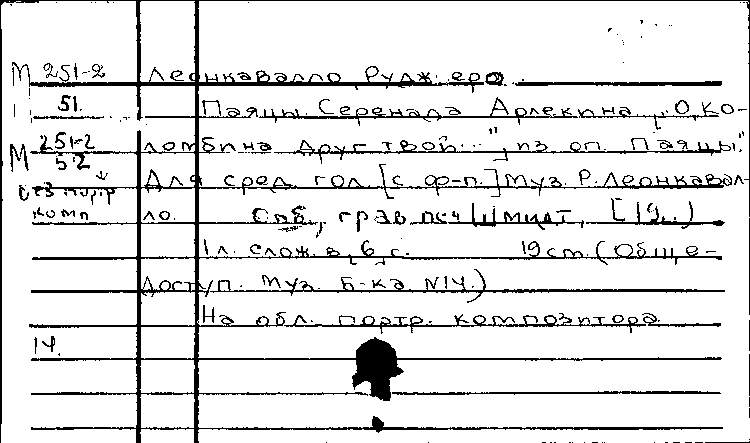 М 251-2 Леонкавалло, Руджеро.
51. Паяцы. Серенада Арлекина „О, Ко-
М 251-2 ломбина друг твой..." , из оп. „Паяцы."
52 Для сред. гол. [с ф-п.] Муз. Р. Леонкавал-
без портр комп ло. Спб., грав печ Шмидт, [19..)
1 л. слож. в 6 с. 19 cm. (Общe-
доступ. муз. Б-ка №14.)
На обл. портр. композитора
14.